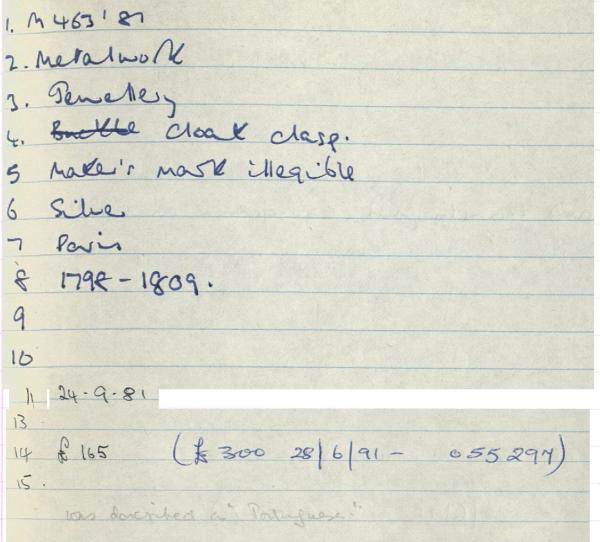 1. M 463'81
2. Metalwork
3. Jewellery
4. Buckle cloak clasp.
5 Maker's mark illegible
6 Silver
7 Paris
8 1798-1809.
9
10
11 24.9.81
13
14 £165 (£300 28/6/91 - 055297)
15.
was described as "Portuguese."